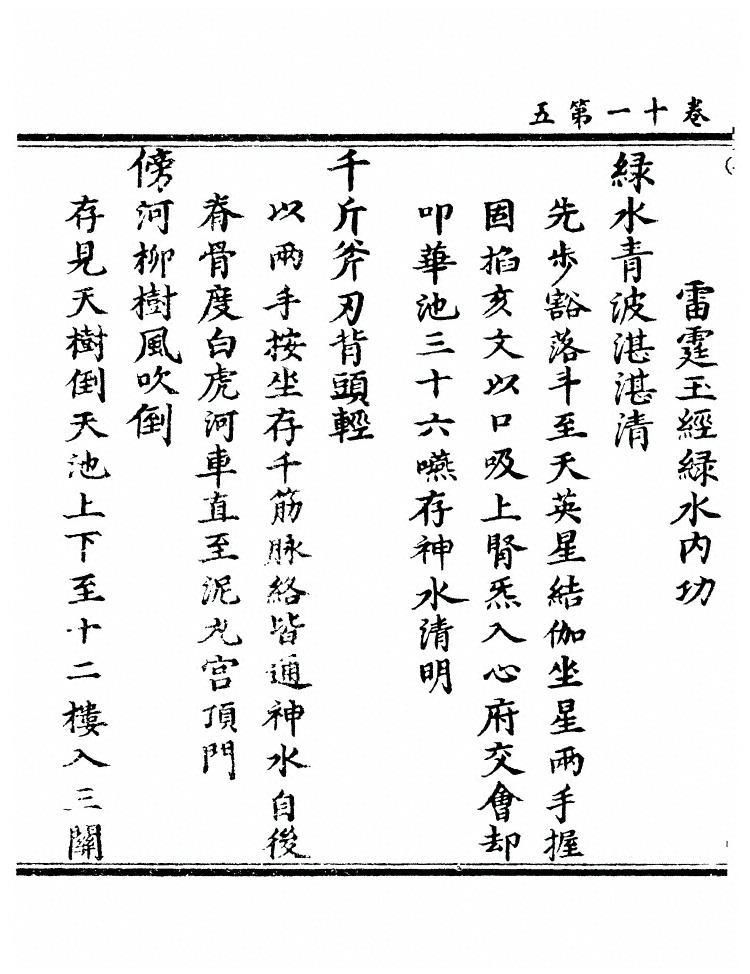 卷十一第五
雷霆玉經緑水内功
緑水青波湛湛清
先步豁落斗至天英星結伽坐星兩手握
固掐亥文以口吸上腎炁入心府交會却
叩華池三十六嚥存神水清明
千斤斧刃背頭輕
以兩手按坐存千筋脉絡皆通神水自後
脊骨度白虎河車直至泥丸宫頂門
傍河柳樹風吹倒
存見天樹倒天池上下至十二樓入三關